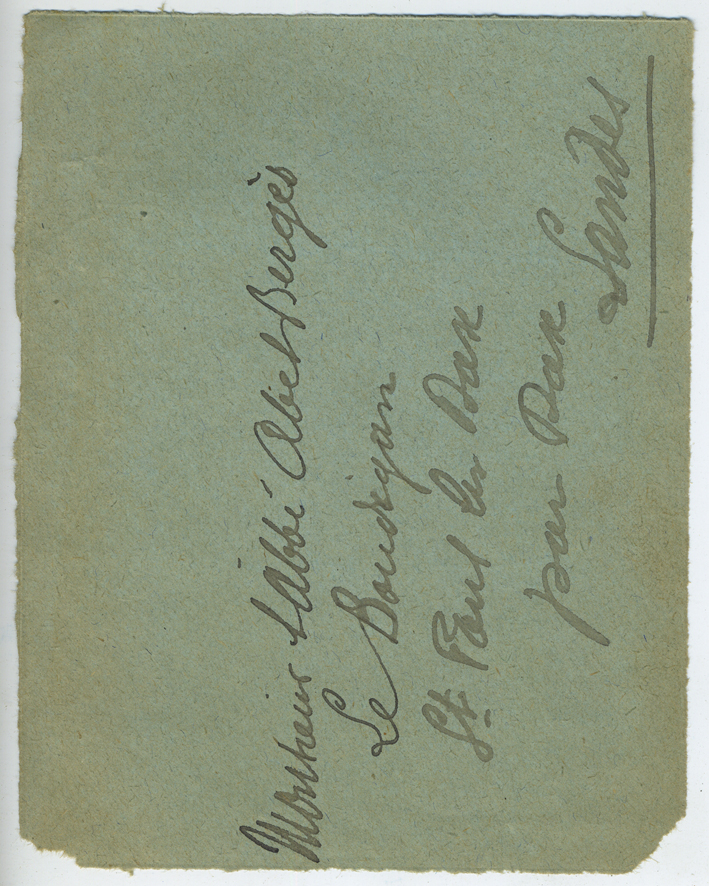 Monsieur L'Abbé Abel Bergès
Le Boudigau
St Paul les Dax
par Dax
Landes